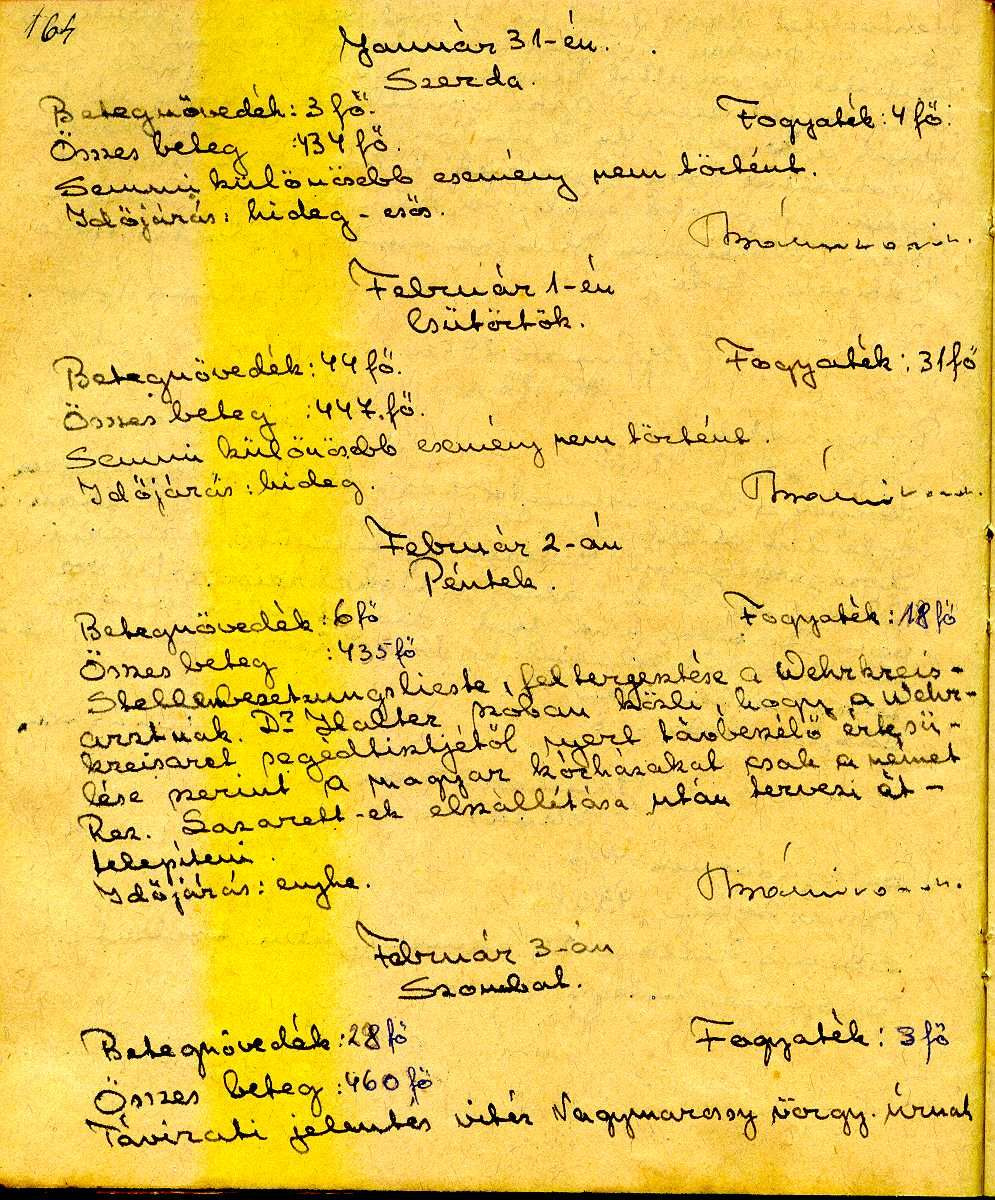 164
Január 31-én.
Szerda.
Betegnövedék: 3 fő. Fogyaték: 4 fő.
Összes beteg :434 fő.
Semmi különösebb esemény nem történt.
Időjárás: hideg - esős.
Február 1-én
Csütörtök.
Betegnövedék: 44 fő. Fogyaték: 31 fő
Összes beteg :447. fő.
Semmi különösebb esemény nem történt.
Időjárás: hideg.
Február 2-án
Péntek.
Betegnövedék: 6 fő Fogyaték: 18 fő
Összes beteg :435 fő
Stellenbesetzungslieste, felterjesztése a Wehrkreis-
arztnak. Dr. Halter szóban közli, hogy a Wehr-
kreisarzt segédtisztjétől nyert távbeszélő értesü-
lése szerint a magyar kórházakat csak a német
Rez. Lazarett-ek elszállítása után tervezi át-
telepíteni.
Időjárás: enyhe.
Február 3-án
Szombat.
Betegnövedék: 28 fő Fogyaték: 3 fő
Összes beteg :460 fő
Távirati jelentés vitéz Nagymarossy vörgy. úrnak